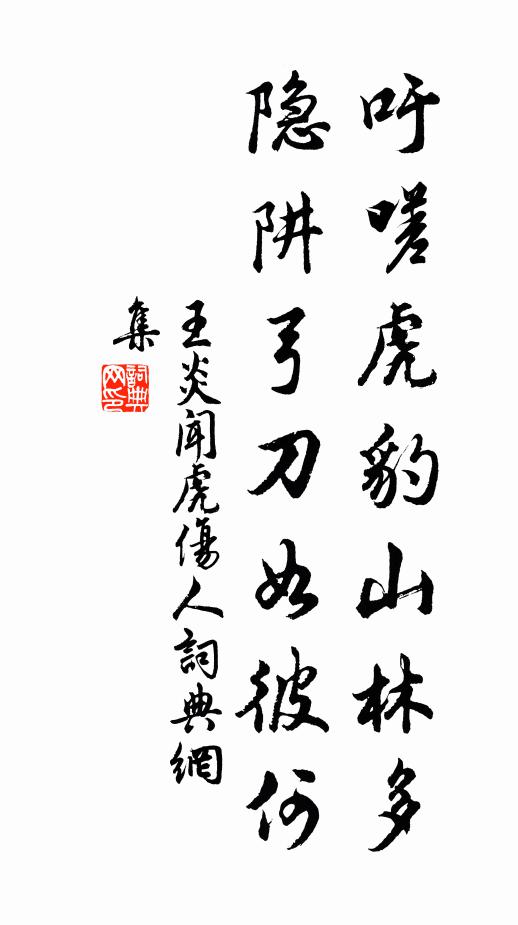 吁嗟虎豹山林多
隐阱弓刀如彼何
王炎闻虎傷人詞典網
集
詞典
网印